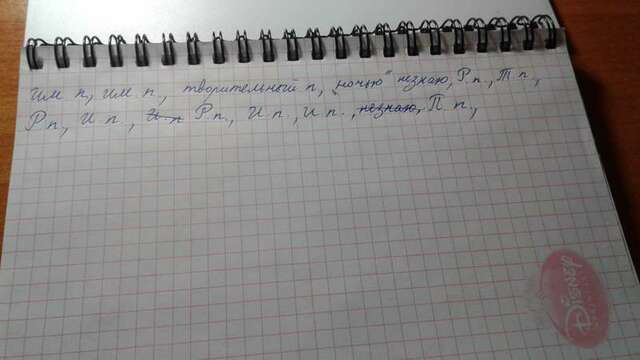 им п, им п, творительный п, „ночью" незнаю, Р.п, Т п,
Р п, И п, И п Р п, И п, И п, незнаю, П п,
DISNEY